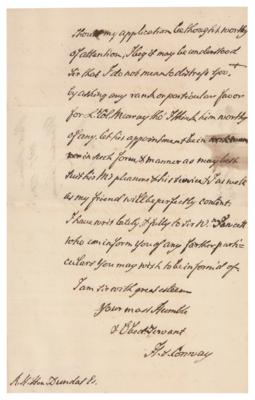 Should my application be thought worthy
of attention, I beg it may be understood
Sir that I do not mean to distress You
by asking any rank or particular favor
for Lt. Col. Murray tho' I think him worthy
of any. let his appointment be in
in such form & manner as may best
suit his M's pleasure & his service & as well
as my friend will be perfectly content.
I have writ lately & fully to Sir W. Fawcett
who can inform You of any farther parti-
culars You may wish to be inform'd of.
I am Sir with great esteem
Your most Humble
& Obedt Servant
H S Conway
Rt Hon Dundas Es.